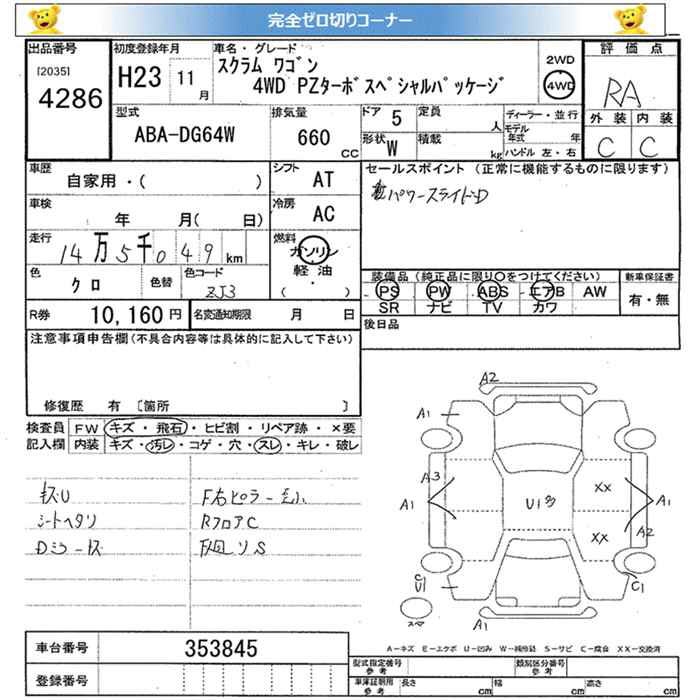 完全ゼロ切りコーナー
出品番号 初度登録年月 車名・グレード 評価点
[2035] 4286
H23 11月
スクラム ワゴン
4WD PZターボスペシャルパッケージ
2WD
4WD
RA
型式 ABA-DG64W
排気量 660 CC
ドア 5 定員 人
形状 W 積載 kg
ディーラー・並行
モデル年式 年
ハンドル 左・右
外装 内装
C C
車歴 自家用・( )
シフト AT
セールスポイント (正常に機能するものに限ります)
パワースライドD
車検 年 月( 日)
冷房 AC
走行 14万5千049km
燃料 ガソリン
軽油
・( )
色 クロ 色替 色コード ZJ3
装備品 (純正品に限り○をつけてください) 新車保証書
PS PW ABS エアB AW 有・無
SR ナビ TV カワ
R券 10,160円 名変通知期限 月 日
後日品
注意事項申告欄(不具合内容等は具体的に記入して下さい)
修復歴 有 〔箇所 〕
検査員 FW キズ・飛石・ヒビ割・リペア跡・×要
記入欄 内装 キズ・汚レ・コゲ・穴・スレ・キレ・破レ
キズU
シートヘタリ
Dミラーキズ
F右ピラー
RフロアC
F廻りS
A2
A1
A3
A1
A1
A2
U1多
XX
XX
C
U1
C1
A1
スマ
A-キズ E-エクボ U-凹み W-補修跡 S-サビ C-腐食 XX-交換済
車台番号 353845
登録番号
型式指定番号 参考 類別区分番号 参考
車庫証明用 参考 長さ cm 幅 cm 高さ cm